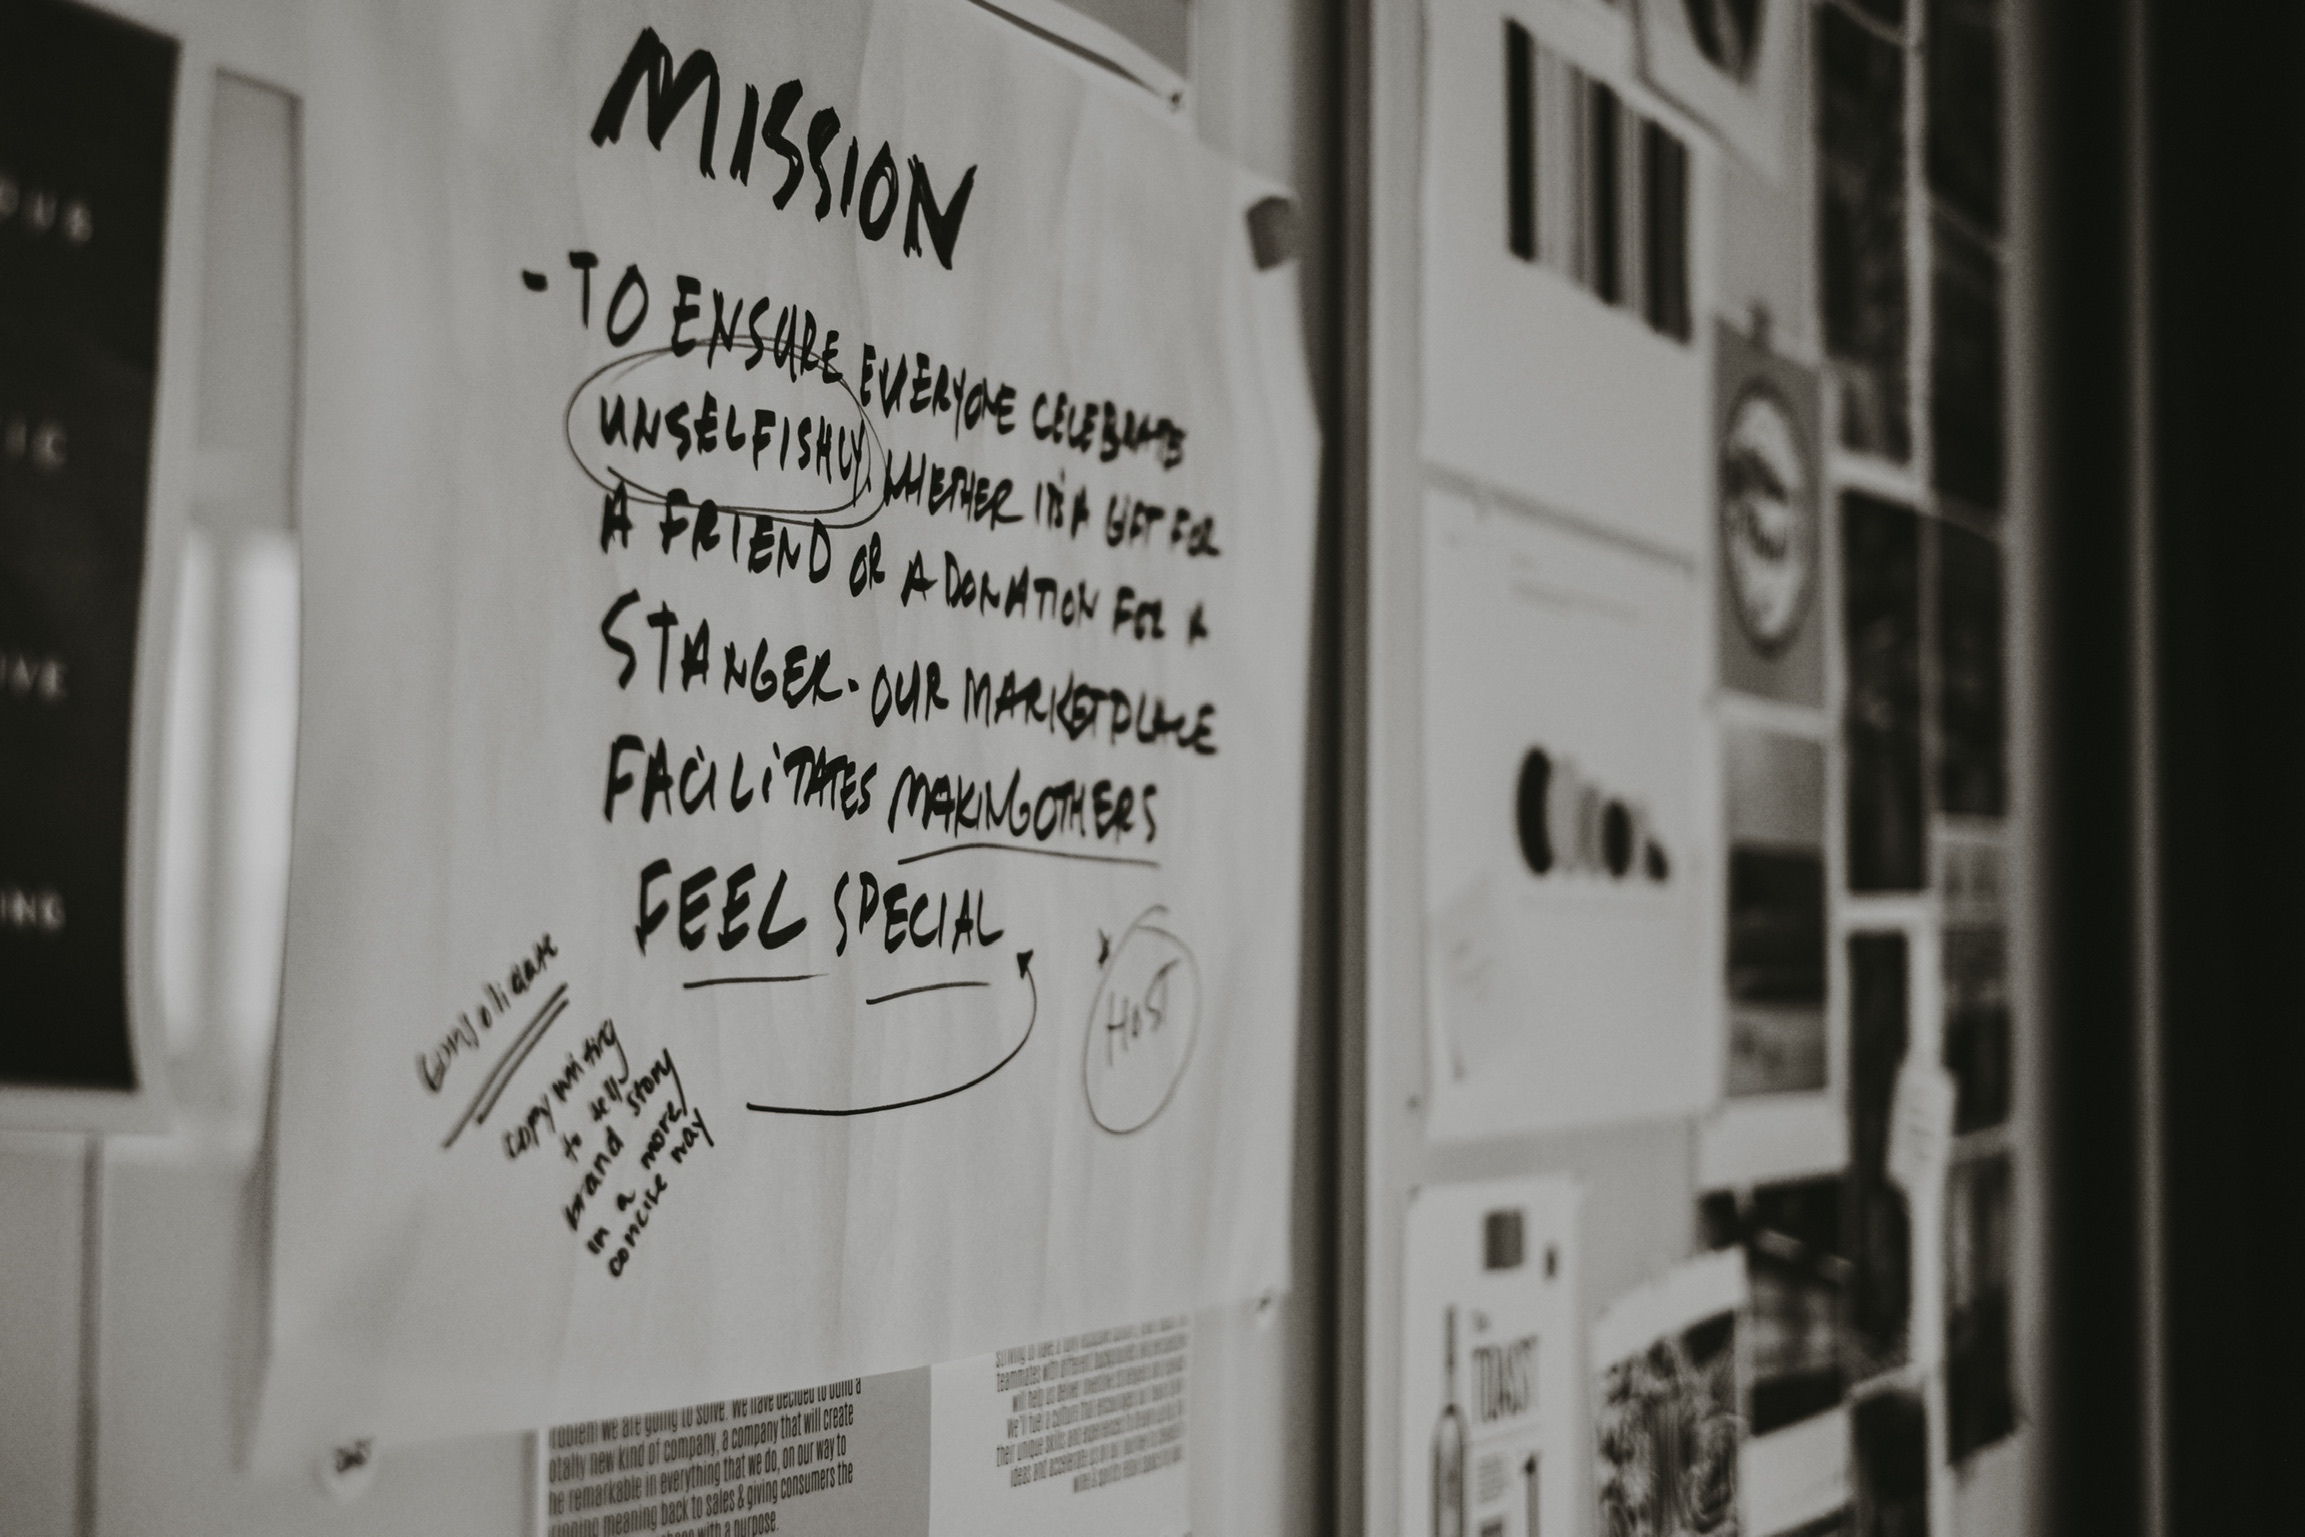 MISSION
- TO ENSURE EVERYONE CELEBRATE
UNSELFISHLY, WHETHER IT'S A GIFT FOR
A FRIEND OR A DONATION FOR A
STANGER. OUR MARKETPLACE
FACILITATES MAKING OTHERS
FEEL SPECIAL
HOST
Consolidate
copywriting
to tell
brand story
in a more
concise way
roblem we are going to solve. We have decided to build a
otally new kind of company, a company that will create
he remarkable in everything that we do, on our way to
meaning back to sales & giving consumers the
with a purpose.
teammates with different backgrounds
will help us deliver
We'll fuel a culture that encourages
their unique skills and experiences
ideas and accelerate
TOAST
IC
IVE
ING